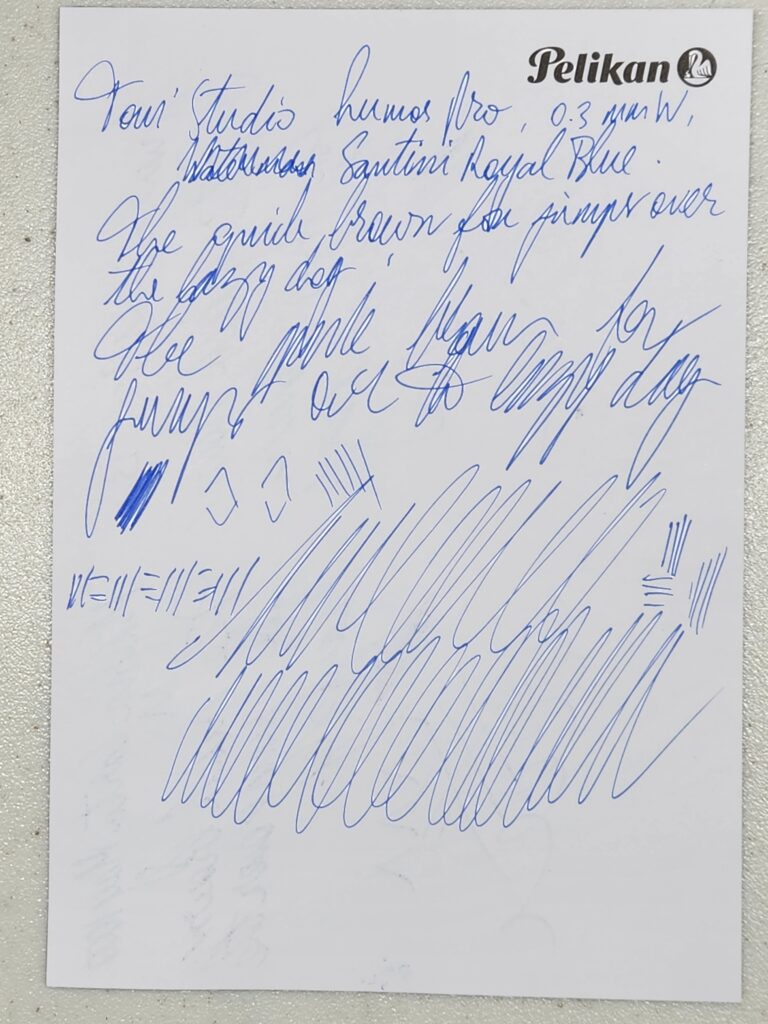 Pelikan
Studio humos Pro, 0.3 mm W,
Santini Royal Blue.
The quick brown fox jumps over
the lazy dog.
The quick brown fox
jumps over the lazy dog